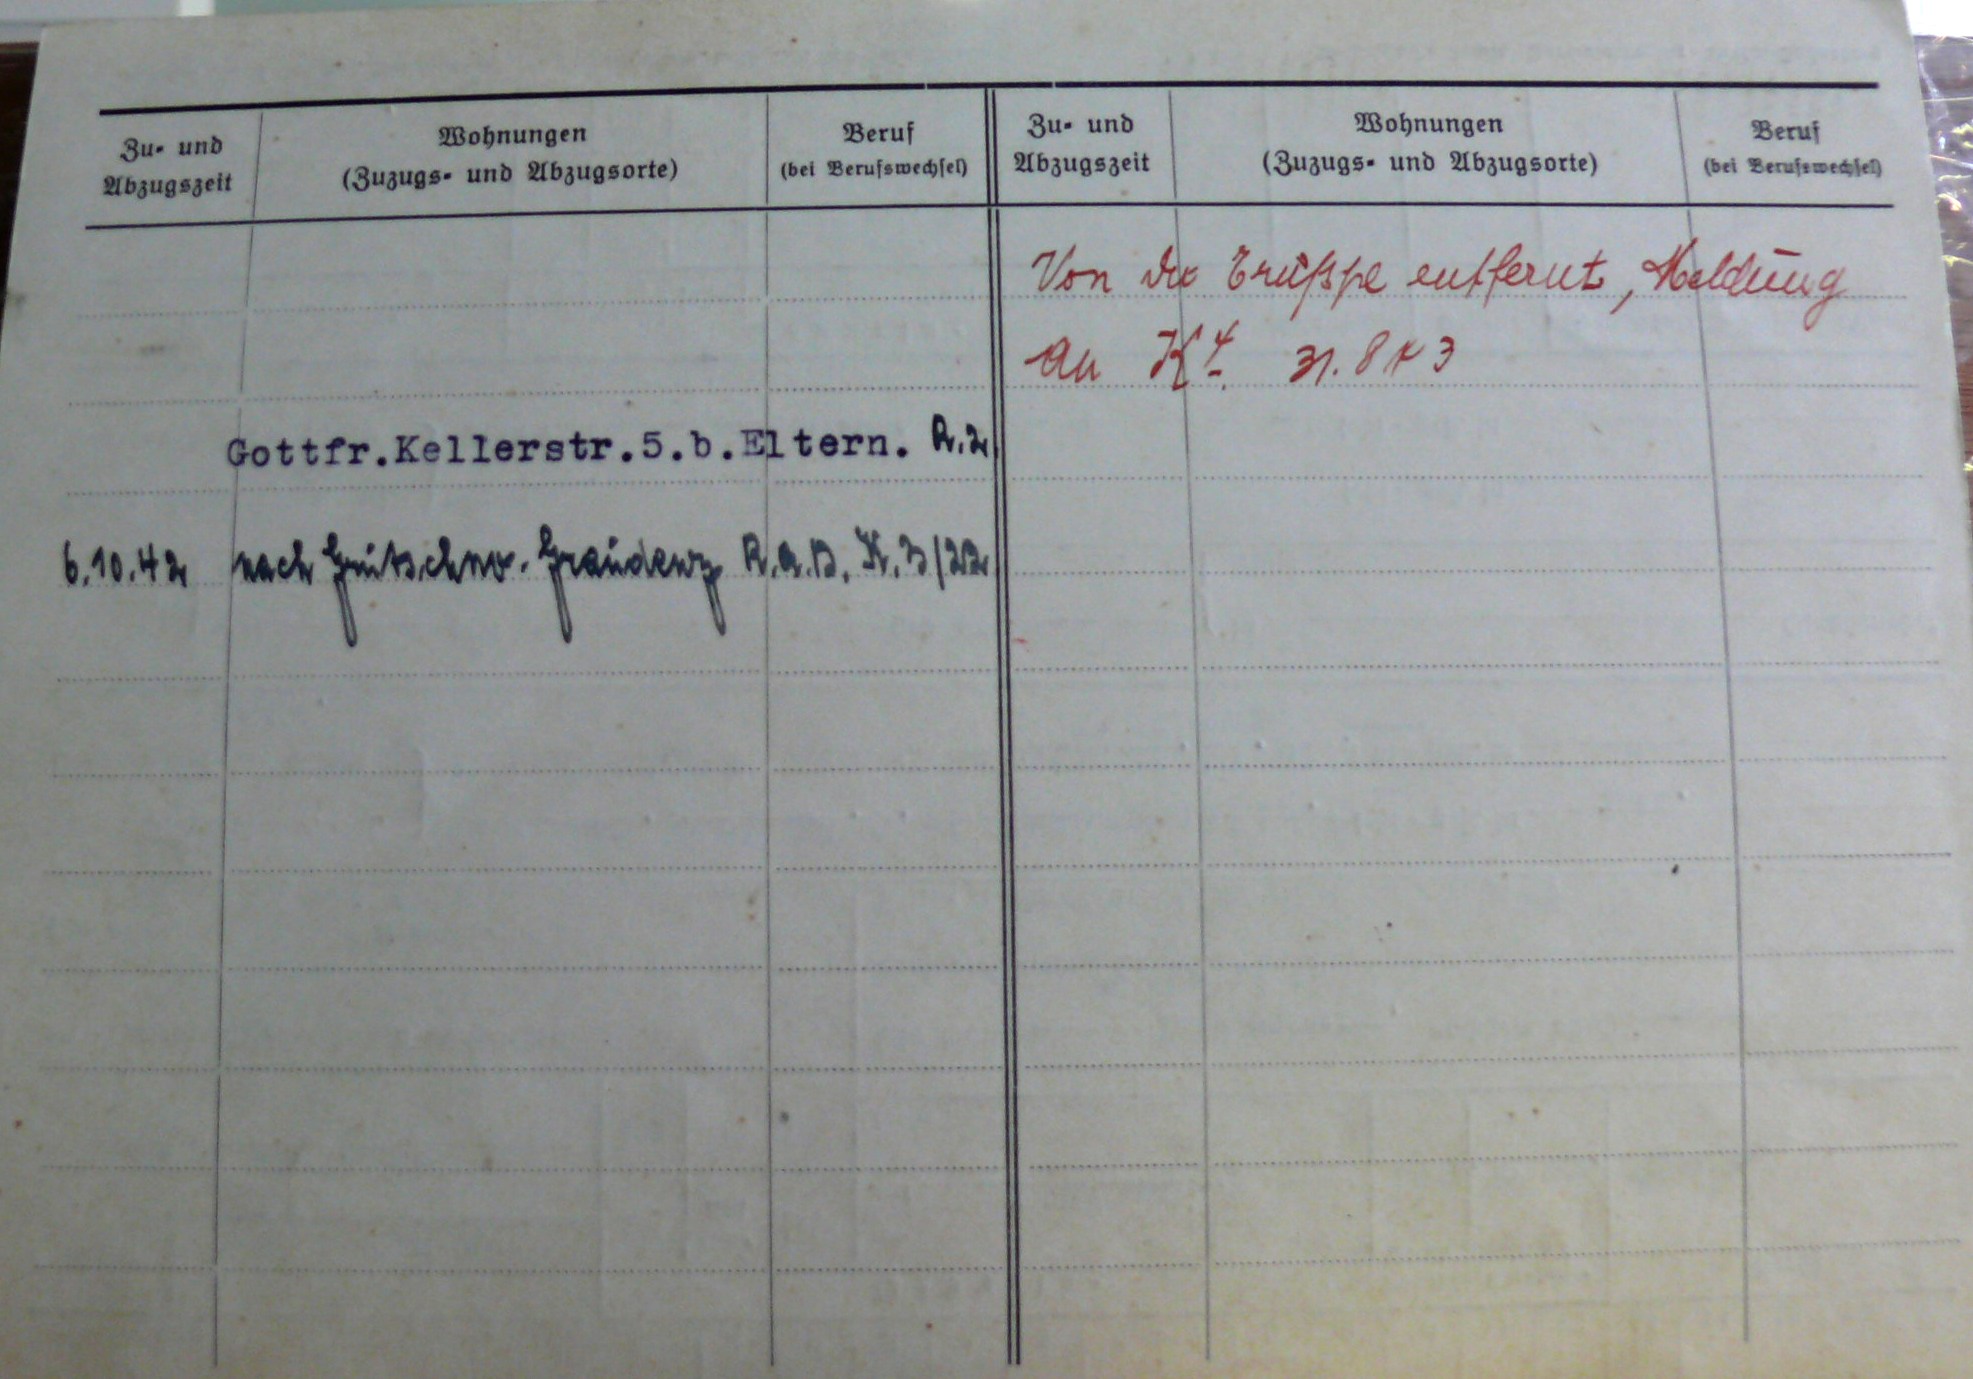 Zu- und Abzugszeit
Wohnungen
(Zuzugs- und Abzugsorte)
Beruf
(bei Berufswechsel)
Zu- und Abzugszeit
Wohnungen
(Zuzugs- und Abzugsorte)
Beruf
(bei Berufswechsel)
Von der Trūppe entfernt, Meldūng
an K 4.
Gottfr.Kellerstr.5.b.Eltern. R.2
6.10.42 nach Graudenz R.A.D. K. 3/22